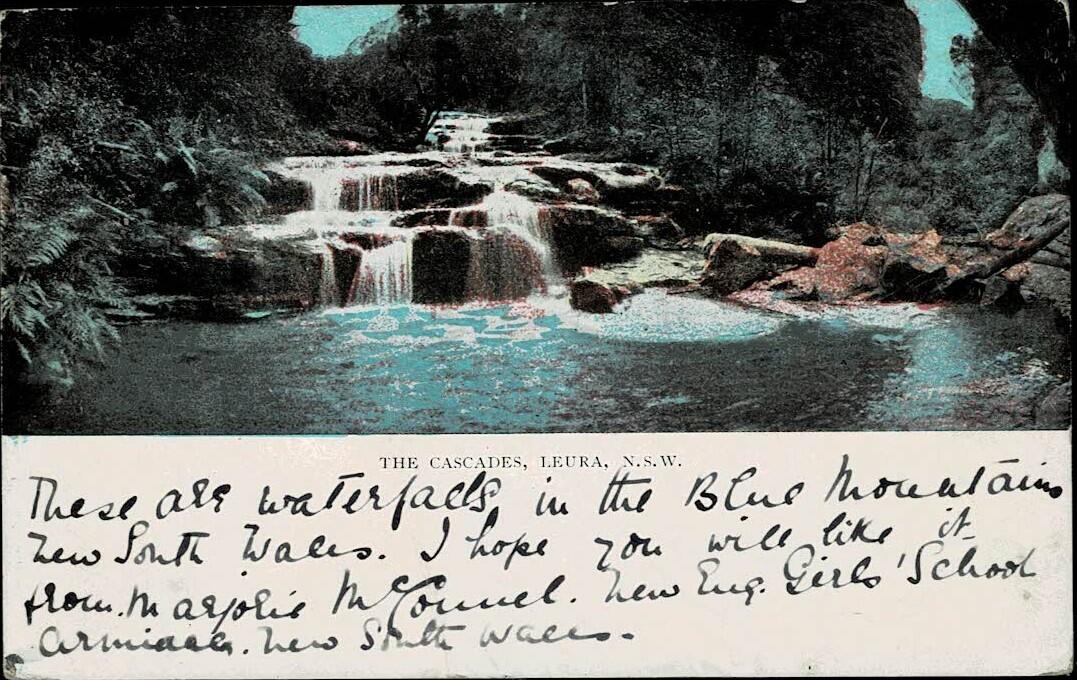 THE CASCADES, LEURA, N.S.W.
These are waterfalls in the Blue Mountains
New South Wales. I hope you will like it
from. Marjorie McConnel. New Eng. Girls' School
Armidale. New South Wales.